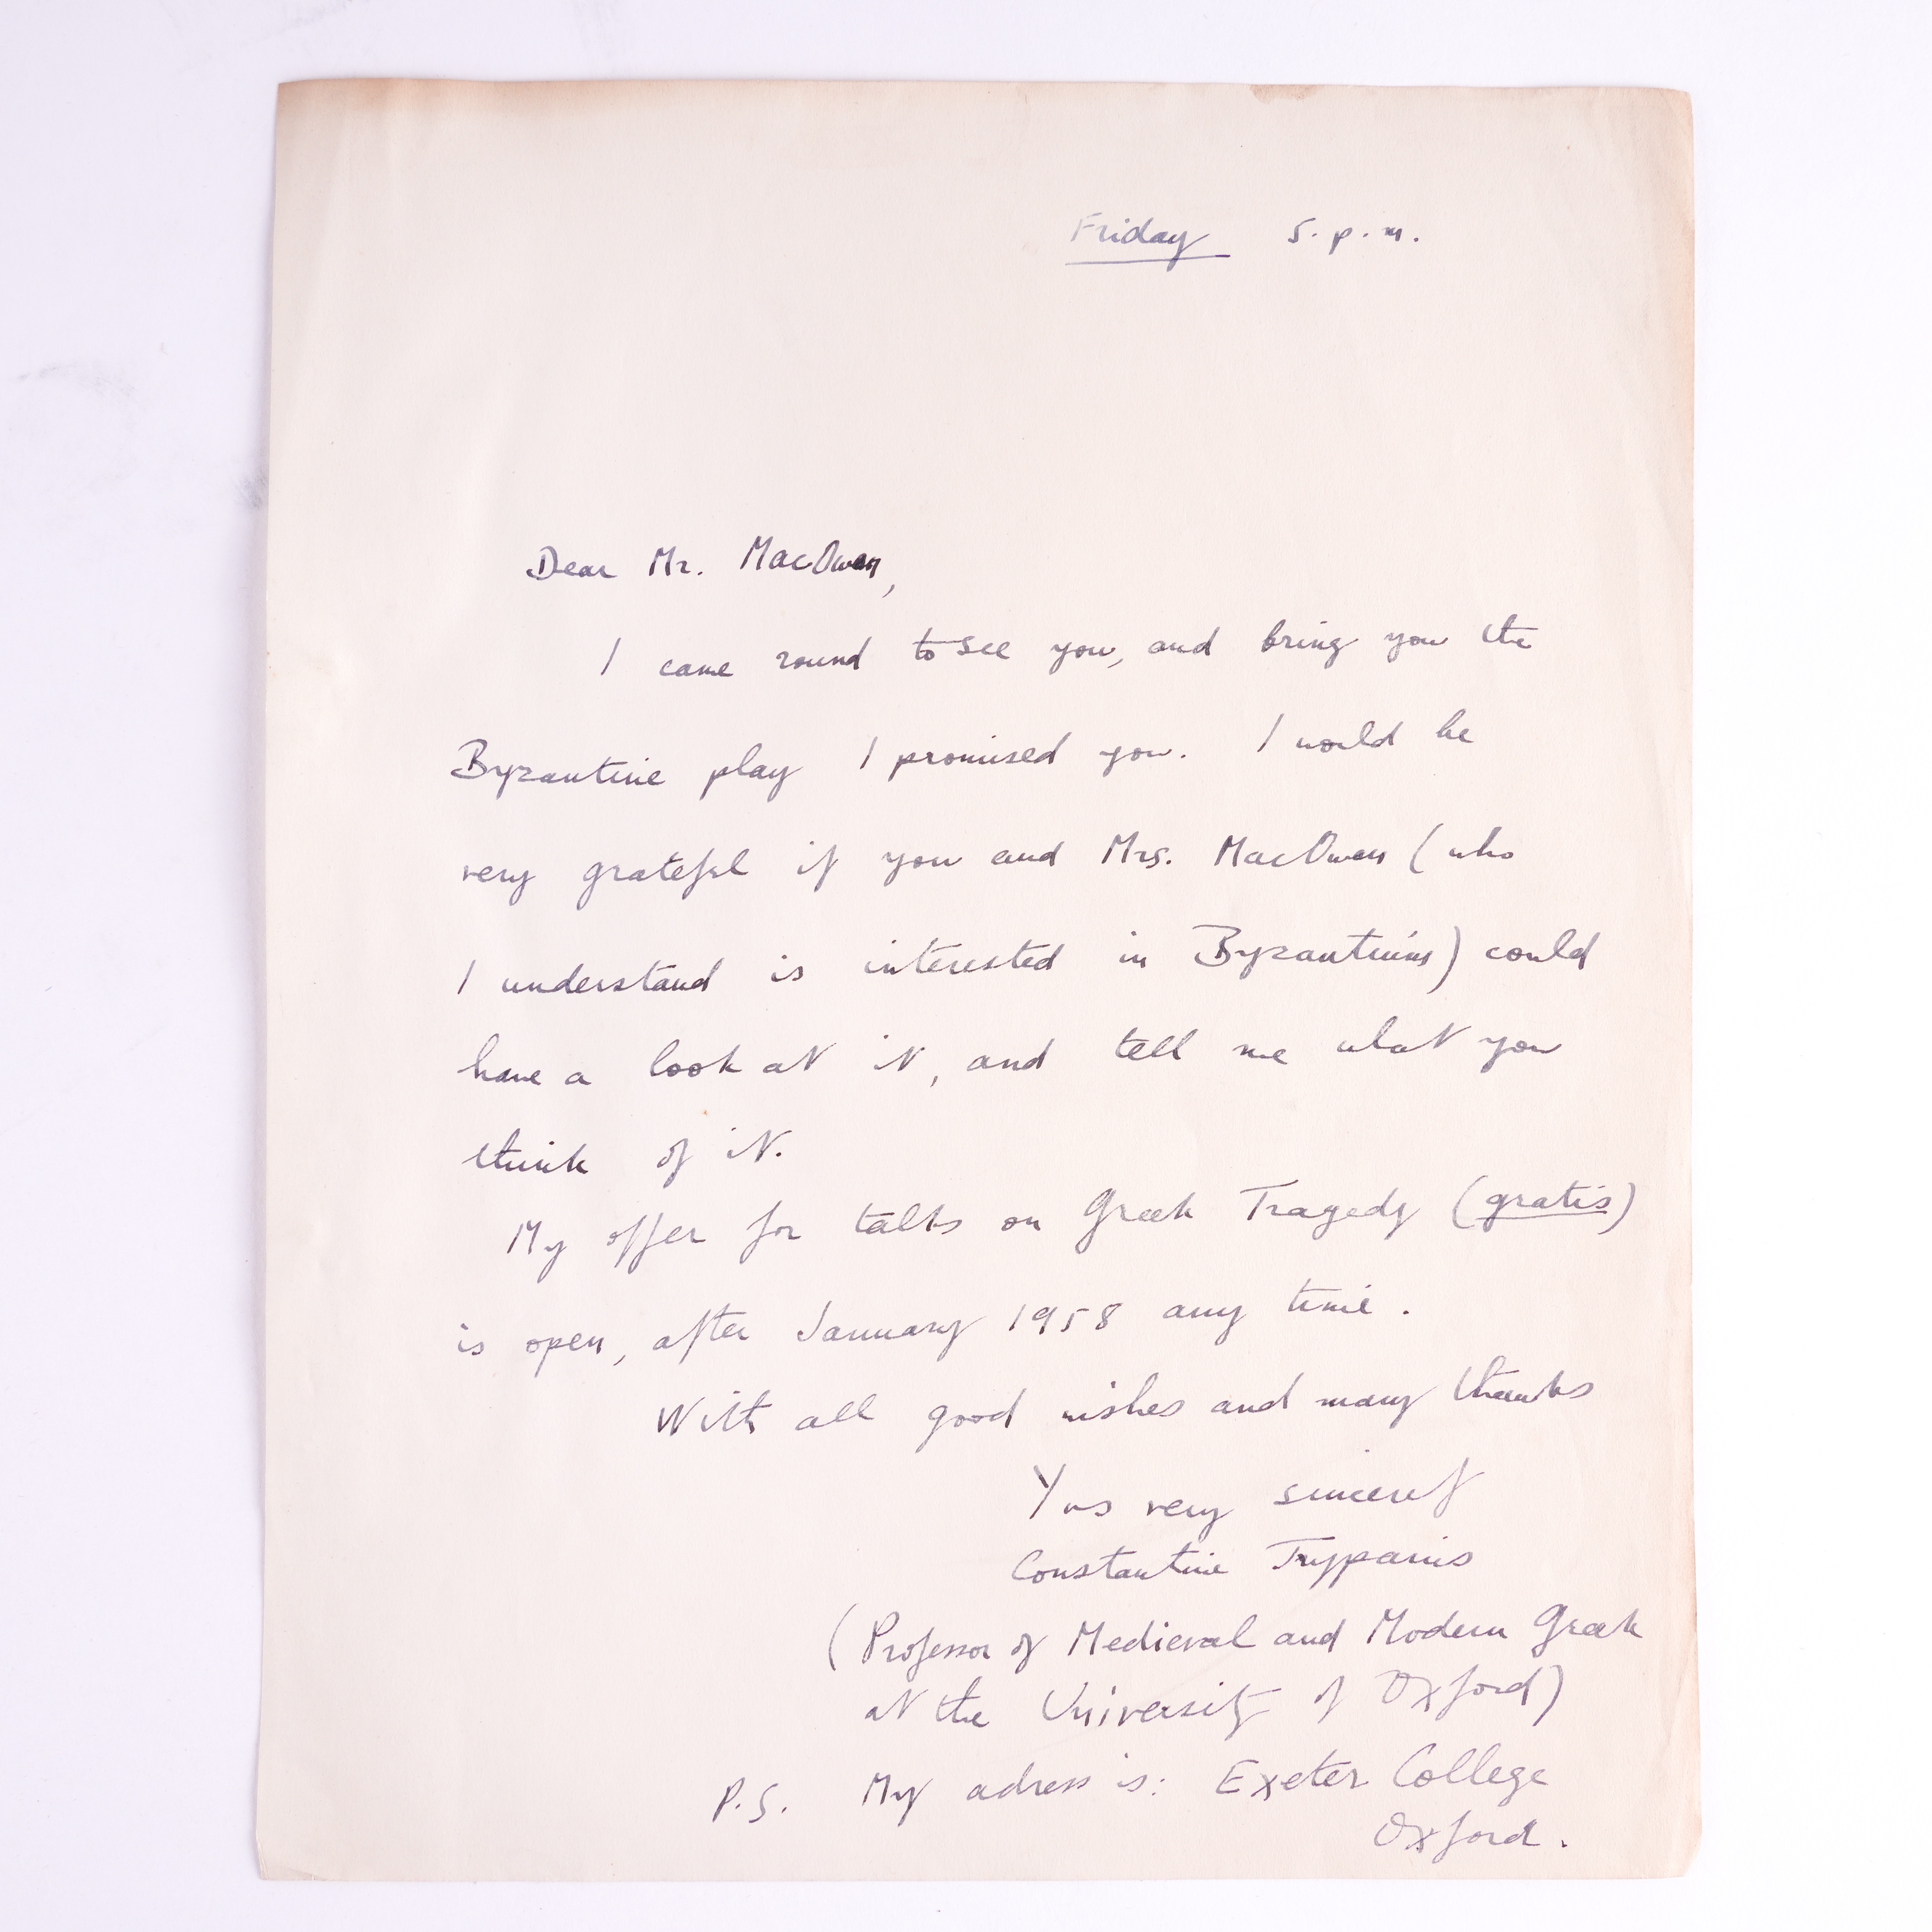 Friday 5. p. m.
Dear Mr. MacOwen,
I came round to see you, and bring you the
Byzantine play I promised you. I would be
very grateful if you and Mrs. MacOwen (who
I understand is interested in Byzantium) could
have a look at it, and tell me what you
think of it.
My offer for talks on Greek Tragedy (gratis)
is open, after January 1958 any time.
With all good wishes and many thanks
Yrs very sincerely
Constantine Trypanis
(Professor of Medieval and Modern Greek
at the University of Oxford)
P.S. My adress is: Exeter College
Oxford.